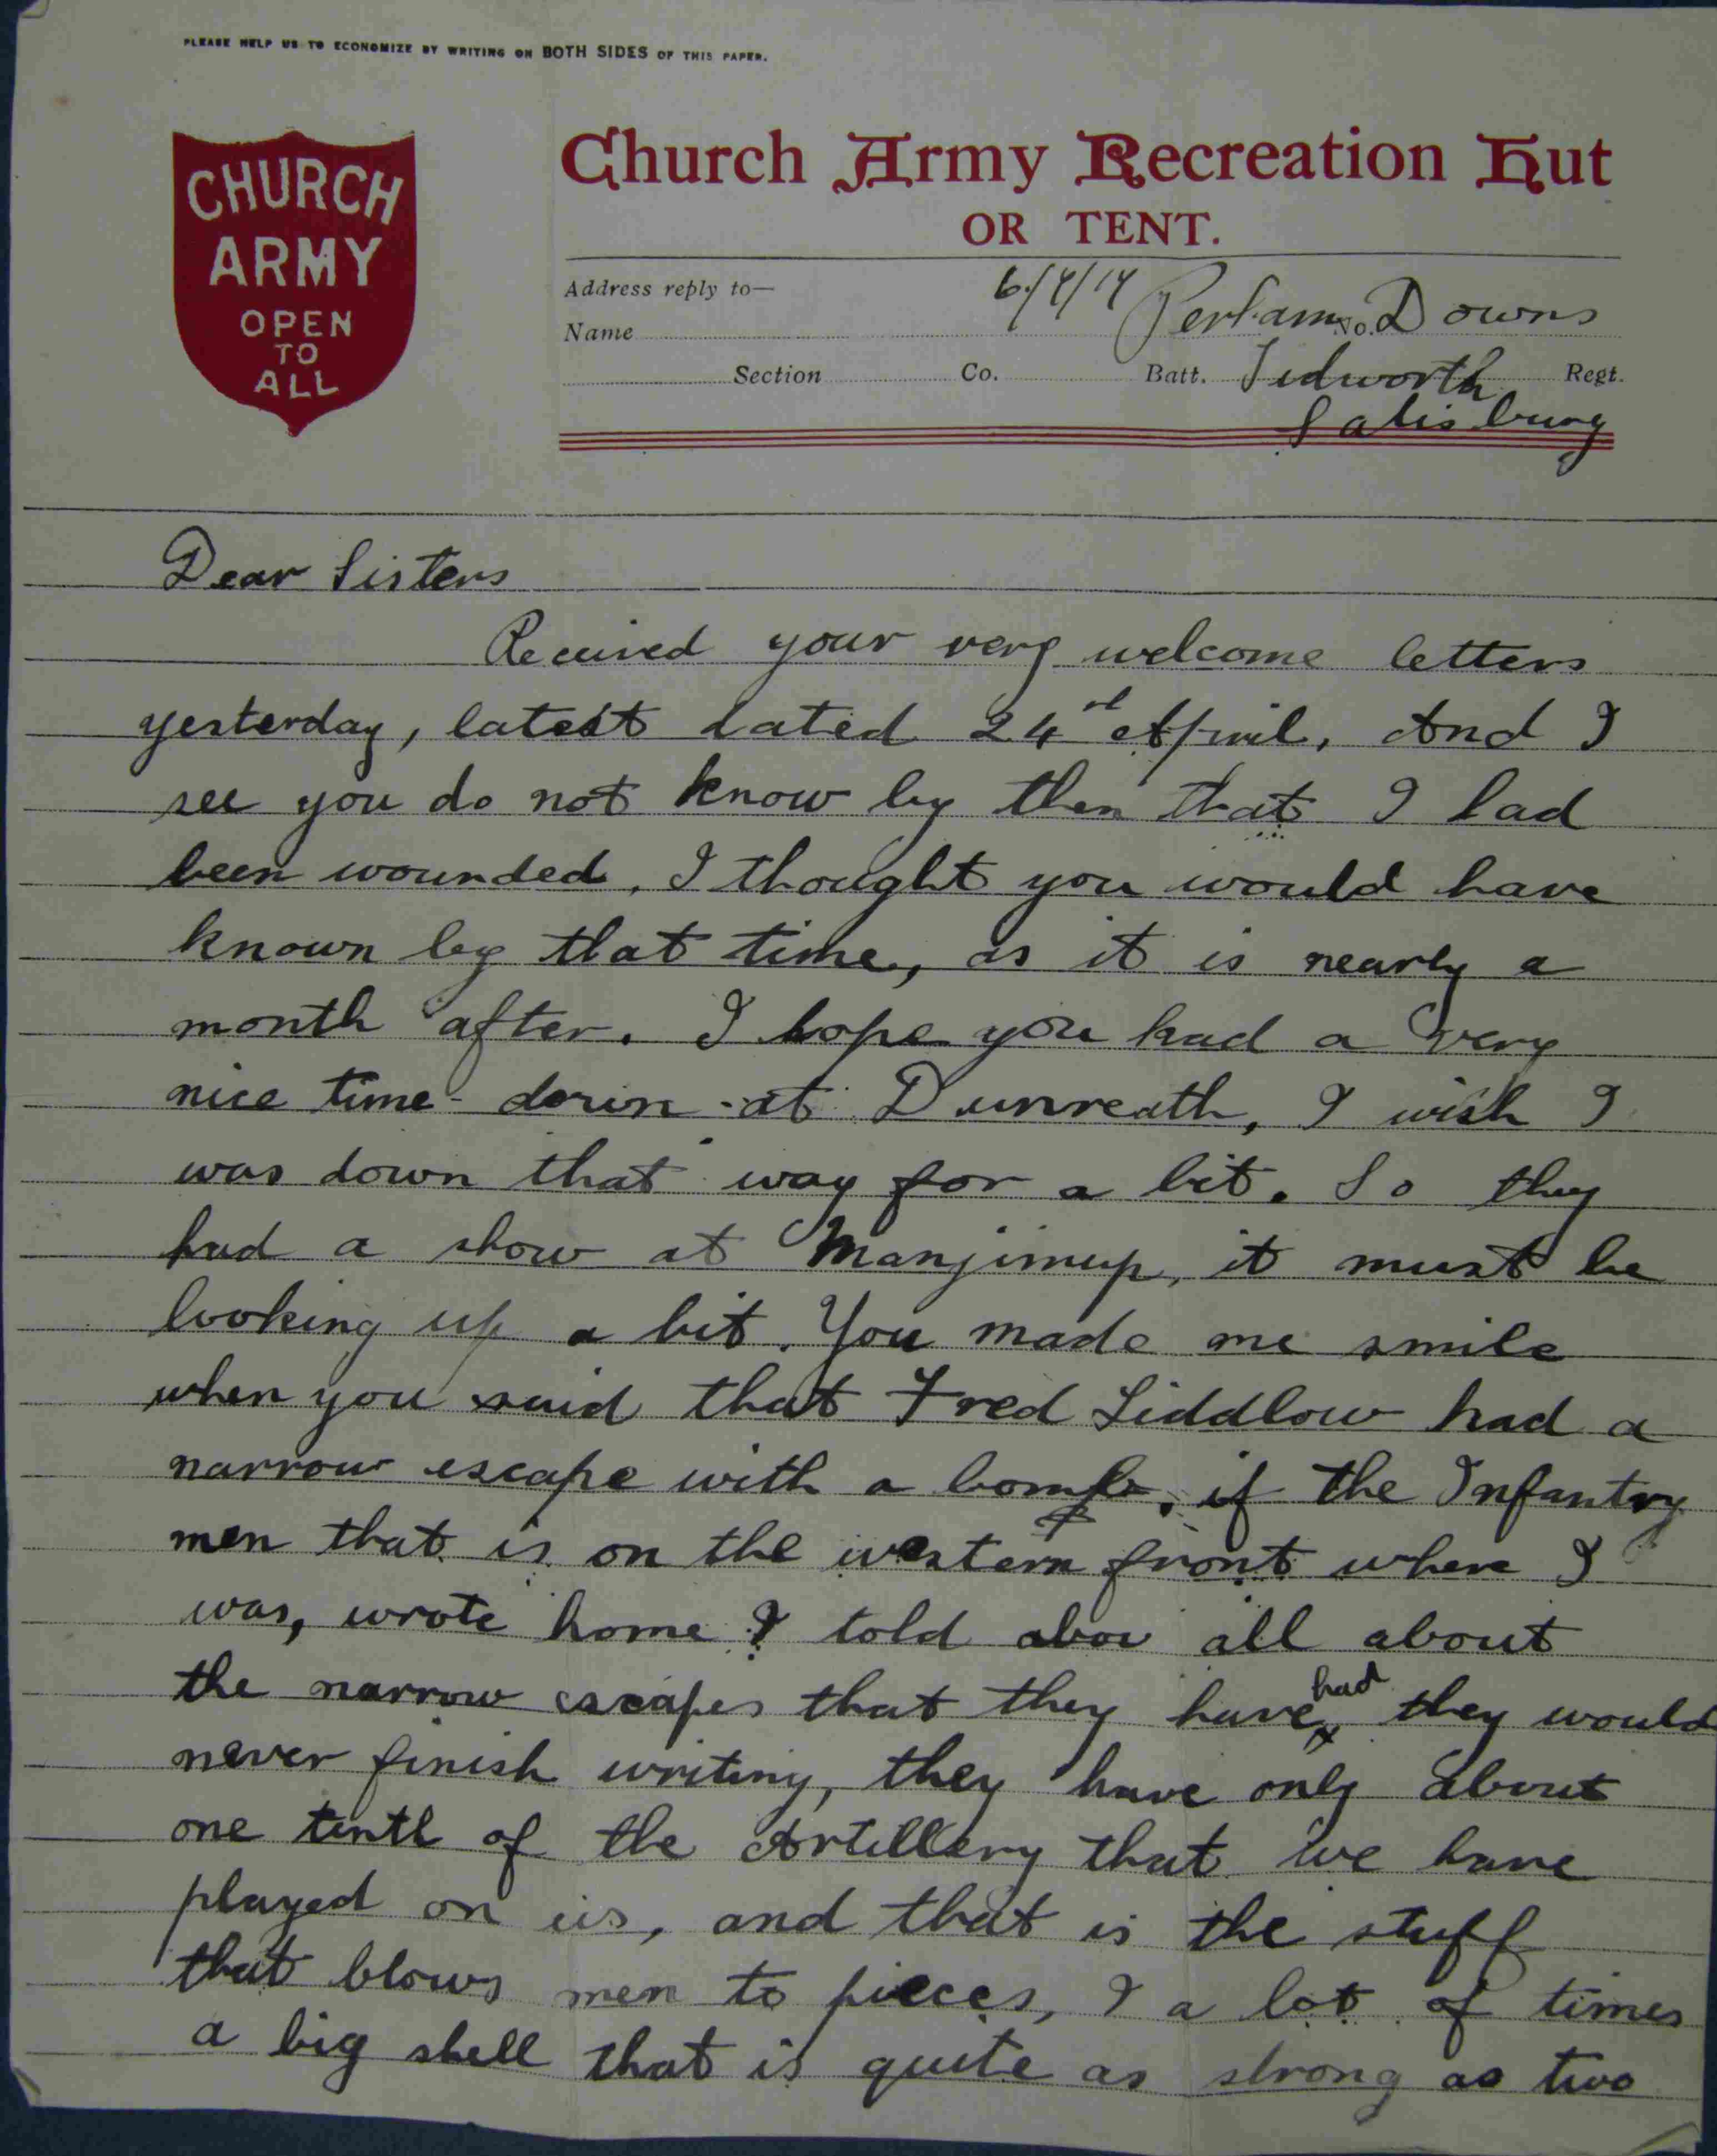 PLEASE HELP US TO ECONOMIZE BY WRITING ON BOTH SIDES OF THIS PAPER.
CHURCH
ARMY
OPEN
TO
ALL
Church Army Recreation Hut
OR TENT.
Address reply to—
6/7/17 Perham Downs
Name No.
Section Co. Batt. Regt.
Tidworth
Salisbury
Dear Sisters
Received your very welcome letters
yesterday, latest dated 24 April, And I
see you do not know by then that I had
been wounded, I thought you would have
known by that time, as it is nearly a
month after. I hope you had a very
nice time down at Dunreath, I wish I
was down that way for a bit. So they
had a show at Manjimup, it must be
looking up a bit. You made me smile
when you said that Fred Liddlow had a
narrow escape with a bomb, if the Infantry
men that is on the western front where I
was, wrote home & told all about
the narrow escapes that they have had they would
never finish writing, they have only about
one tenth of the Artillery that we have
played on us, and that is the stuff
that blows men to pieces, & a lot of times
a big shell that is quite as strong as two